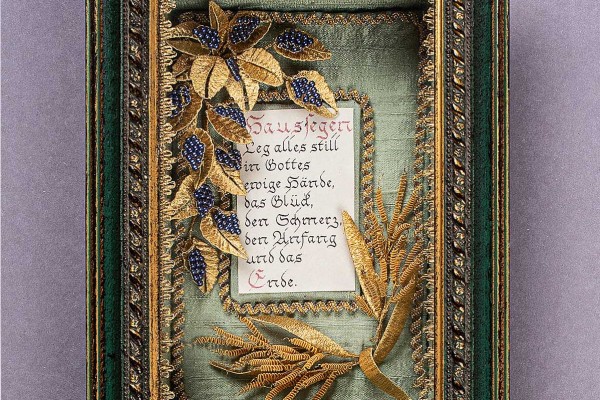 Haussegen
Leg alles still
in Gottes
ewige Hände,
das Glück,
den Schmerz,
den Anfang
und das
Ende.